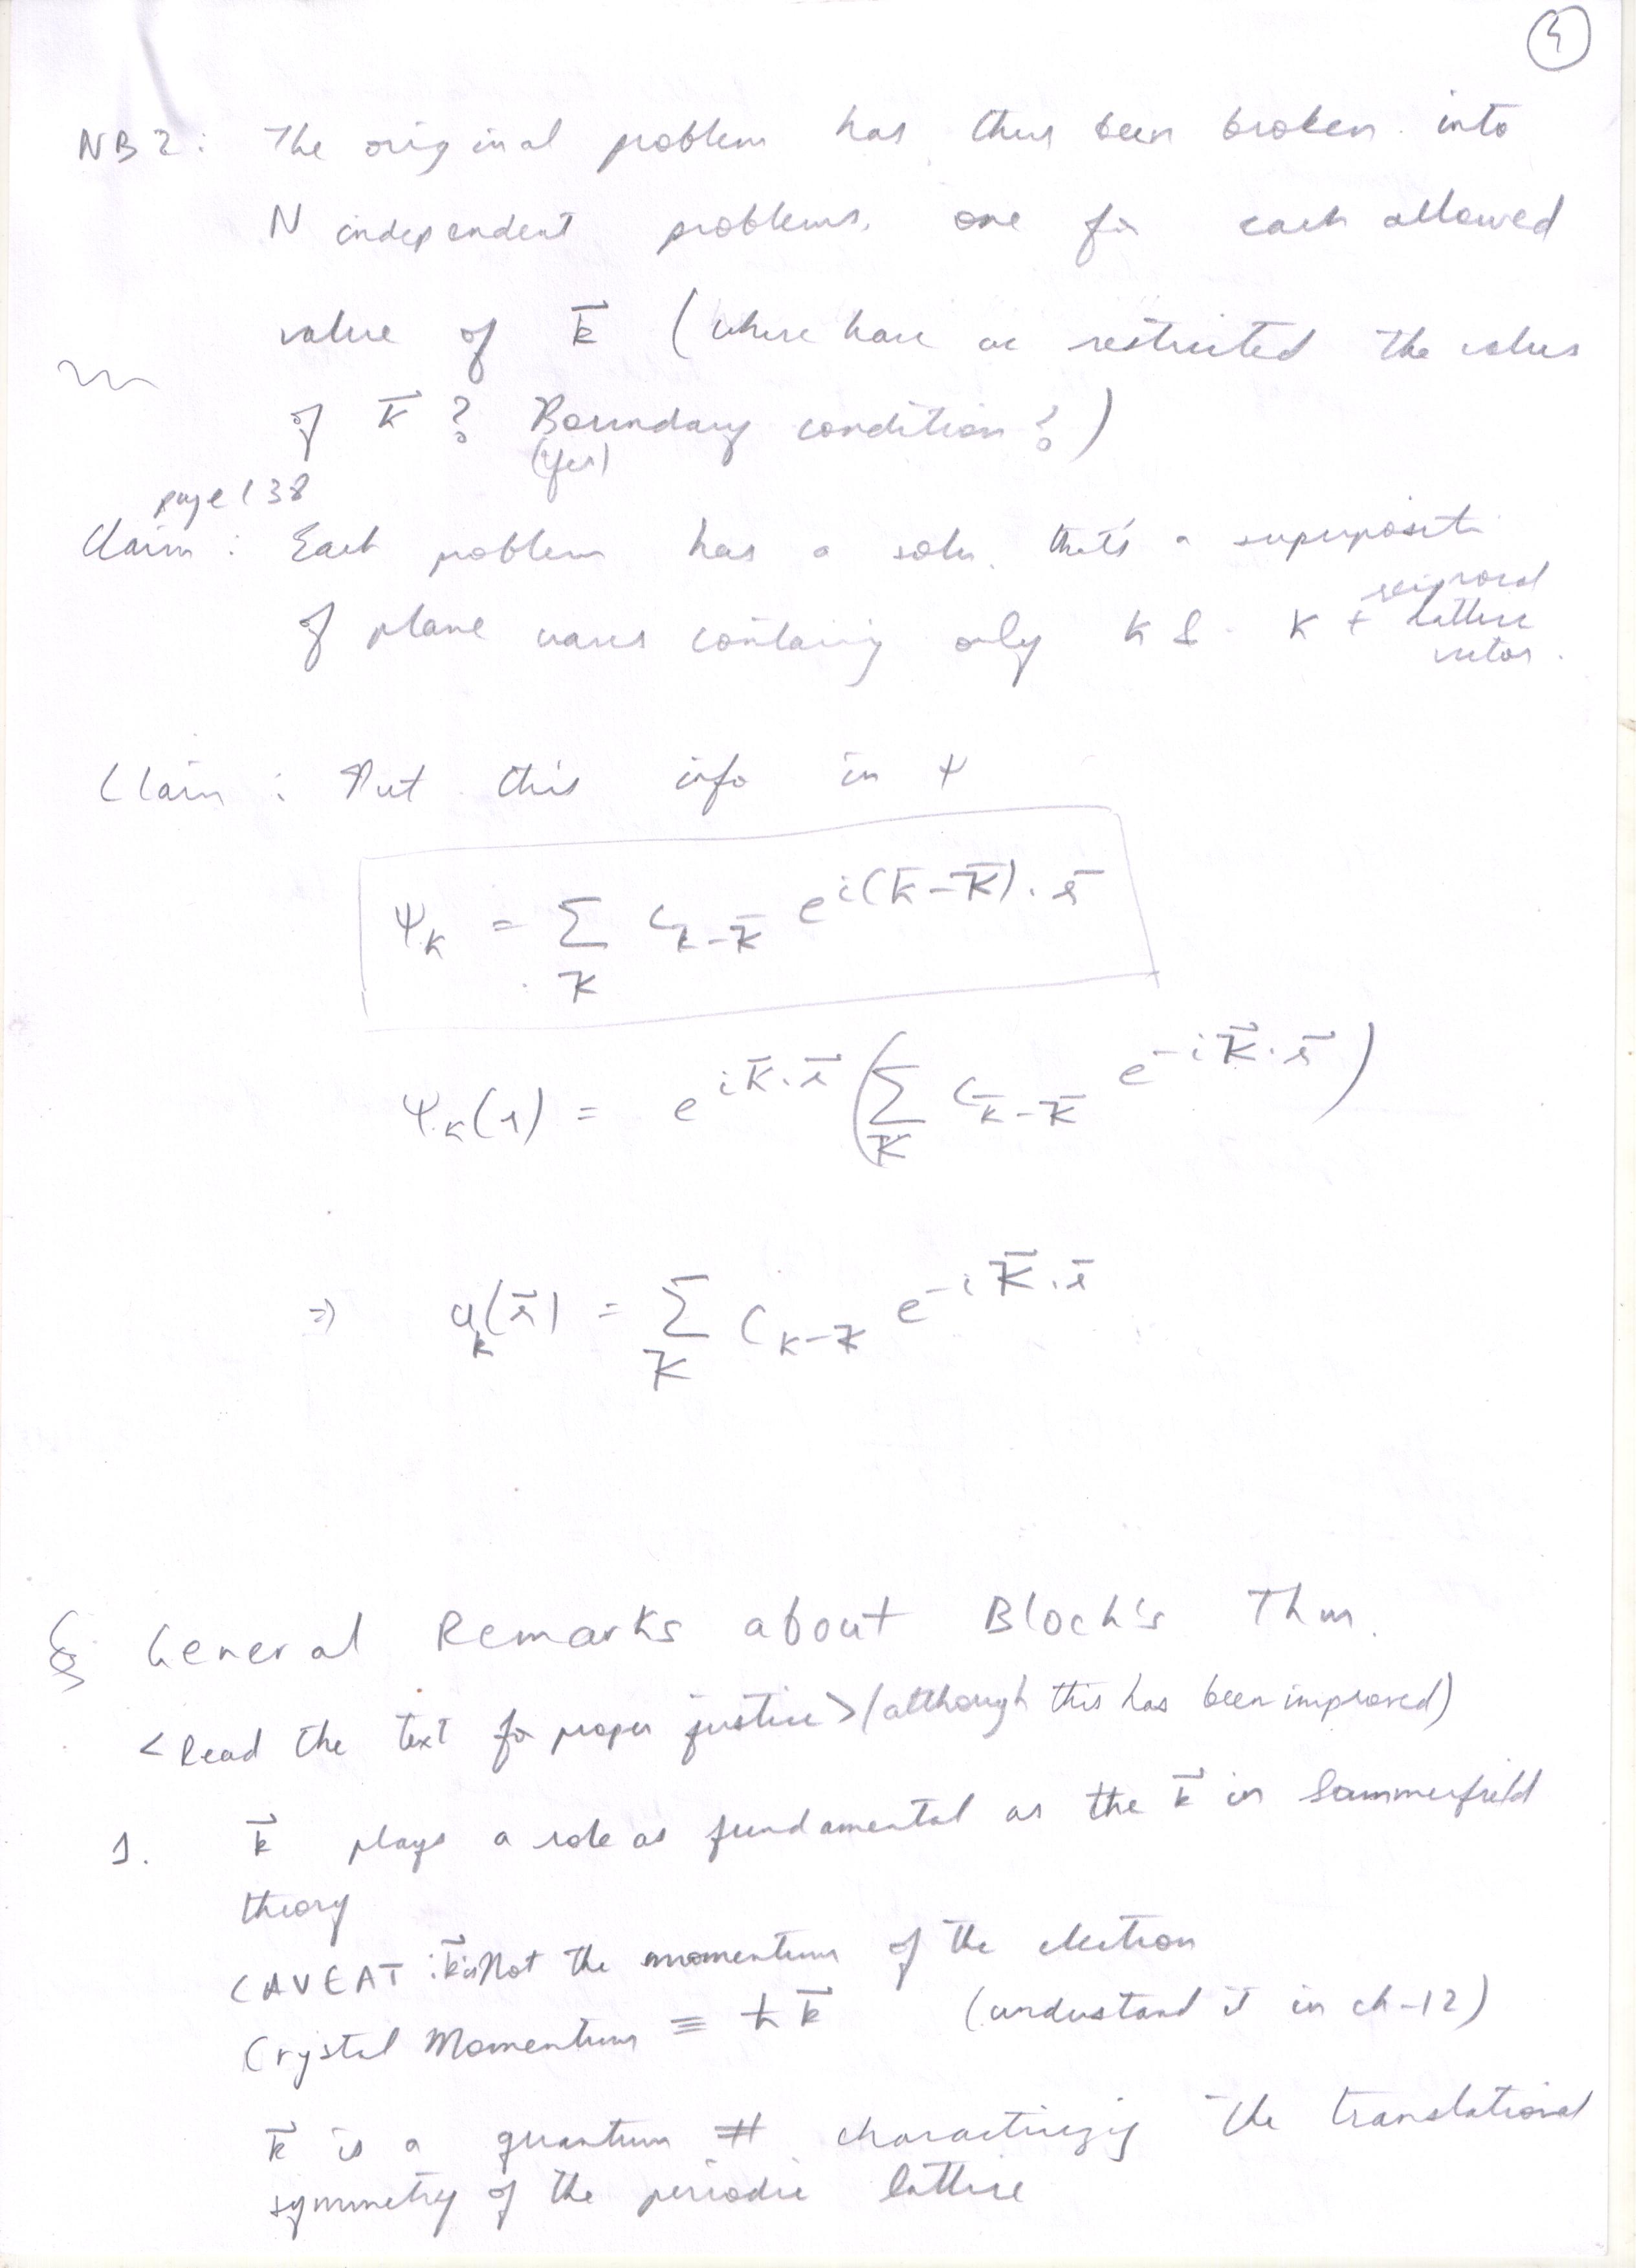 4
NB2: The original problem has thus been broken into
N independent problems, one for each allowed
value of k⃗ (where have we restricted the values
of k⃗ ? Boundary condition?)
(yes)
page 138
Claim : Each problem has a soln. that's a superposit
of plane waves containing only k & k + reciprocal lattice vector.
Claim : Put this info in ψ
ψ_k = Σ_K C_{k-K̄} e^{i(k̄-K̄)·r̄}
ψ_k(r) = e^{ik̄·r⃗} (Σ_K C_{k̄-K̄} e^{-iK⃗·r⃗})
⇒ u_k(r⃗) = Σ_K C_{k-K} e^{-iK̄·r̄}
§ General Remarks about Bloch's Thm.
<Read the text for proper justice> (although this has been improved)
1. k⃗ plays a role as fundamental as the k⃗ in Sommerfield
theory
CAVEAT : k⃗ is Not the momentum of the electron
Crystal Momentum ≡ ħk⃗ (understand it in ch-12)
k⃗ is a quantum # characterizing the translational
symmetry of the periodic lattice